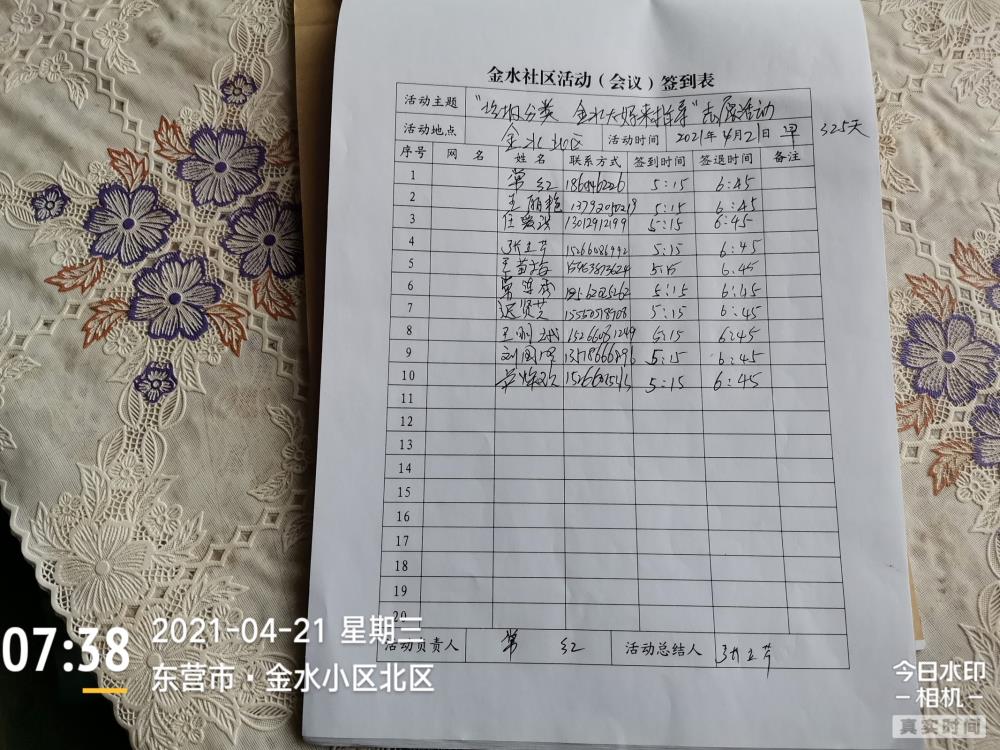 金水社区活动（会议）签到表
活动主题 "垃圾分类 金水大妈来指导"志愿活动
活动地点 金水北区 活动时间 2021年4月21日 早 325天
序号 网 名 姓 名 联系方式 签到时间 签退时间 备注
1 常红 5:15 6:45
2 王丽艳 5:15 6:45
3 13012912199 5:15 6:45
4 张立芹 15266086992 5:15 6:45
5 15963873624 5:15 6:45
6 5:15 6:45
7 5:15 6:45
8 5:15 6:45
9 5:15 6:45
10 5:15 6:45
11
12
13
14
15
16
17
18
19
20
活动负责人 常 红 活动总结人 张立芹
07:38
2021-04-21 星期三
东营市·金水小区北区
今日水印
-相机-
真实时间